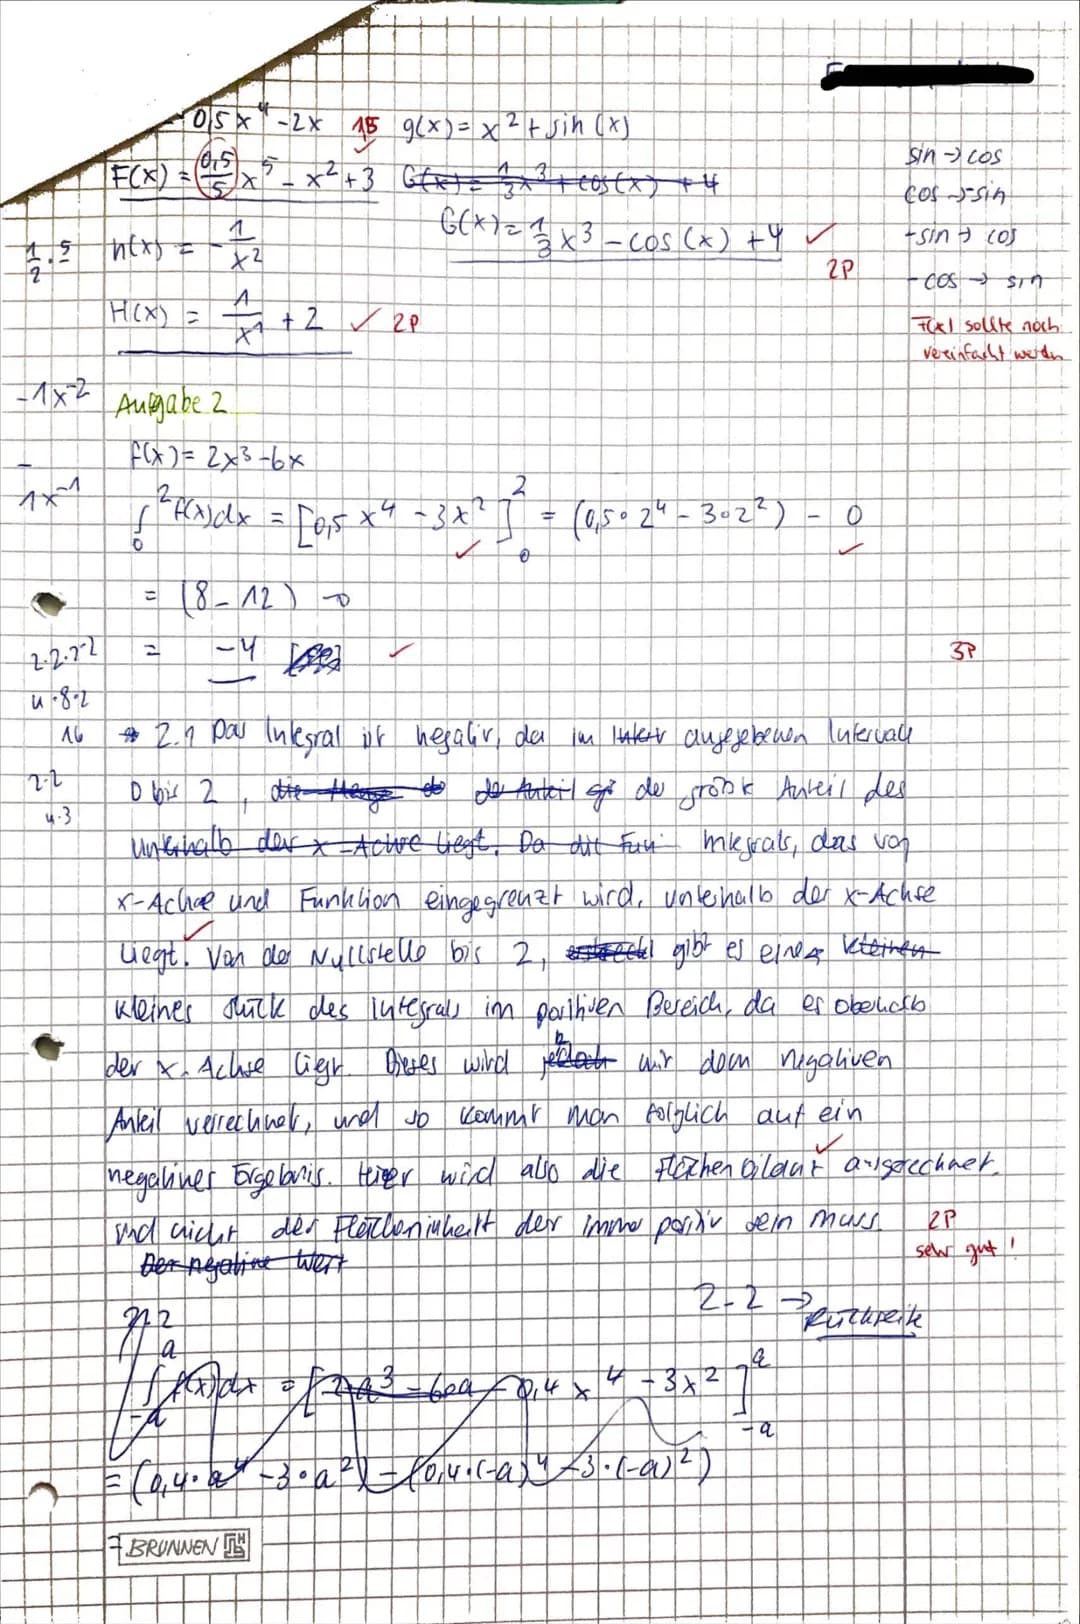 0,5x⁴ - 2x 1,5 g(x) = x² + sin(x)
sin → cos
F(x) = 0,5/5 x⁵ - x² + 3 G(x) = 1/3 x³ + cos(x) + 4
cos → -sin
G(x) = 1/3 x³ - cos(x) + 4 ✓
-sin → cos
1/2 · 5 h(x) = -1/x²
2P
-cos → sin
H(x) = 1/x¹ + 2 ✓ 2P
F(x) sollte noch
vereinfacht werden
-1x⁻² Aufgabe 2
f(x) = 2x³ - 6x
1x⁻¹
∫₀² f(x)dx = [0,5x⁴ - 3x²]₀² = (0,5·2⁴ - 3·2²) - 0
= (8 - 12) - 0
2·2·2·2 = -4 ✓ 3P
4·8·2
16 2.1 Das Integral ist negativ, da im angegebenen Intervall
2·2 0 bis 2, die Menge der Anteil der größte Anteil des
4·3
unterhalb der x-Achse liegt. Da die Fun Integrals, das von
x-Achse und Funktion eingegrenzt wird, unterhalb der x-Achse
liegt. Von der Nullstelle bis 2, erstreckt gibt es eines kleinen
kleines Stück des Integrals im positiven Bereich, da es oberhalb
der x-Achse liegt. Dieses wird jedoch mit dem negativen
Anteil verrechnet, und so kommt man folglich auf ein
negatives Ergebnis. Hier wird also die Flächenbilanz ausgerechnet
und nicht der Flächeninhalt der immer positiv sein muss 2P
sehr gut!
Der negative Wert
2.2 → Rückseite
2.2
∫₋ₐᵃ f(x)dx = [2a³ - 6·a 0,4x⁴ - 3x²]₋ₐᵃ
= (0,4·a⁴ - 3·a²) - (0,4·(-a)⁴ - 3·(-a)²)
BRUNNEN